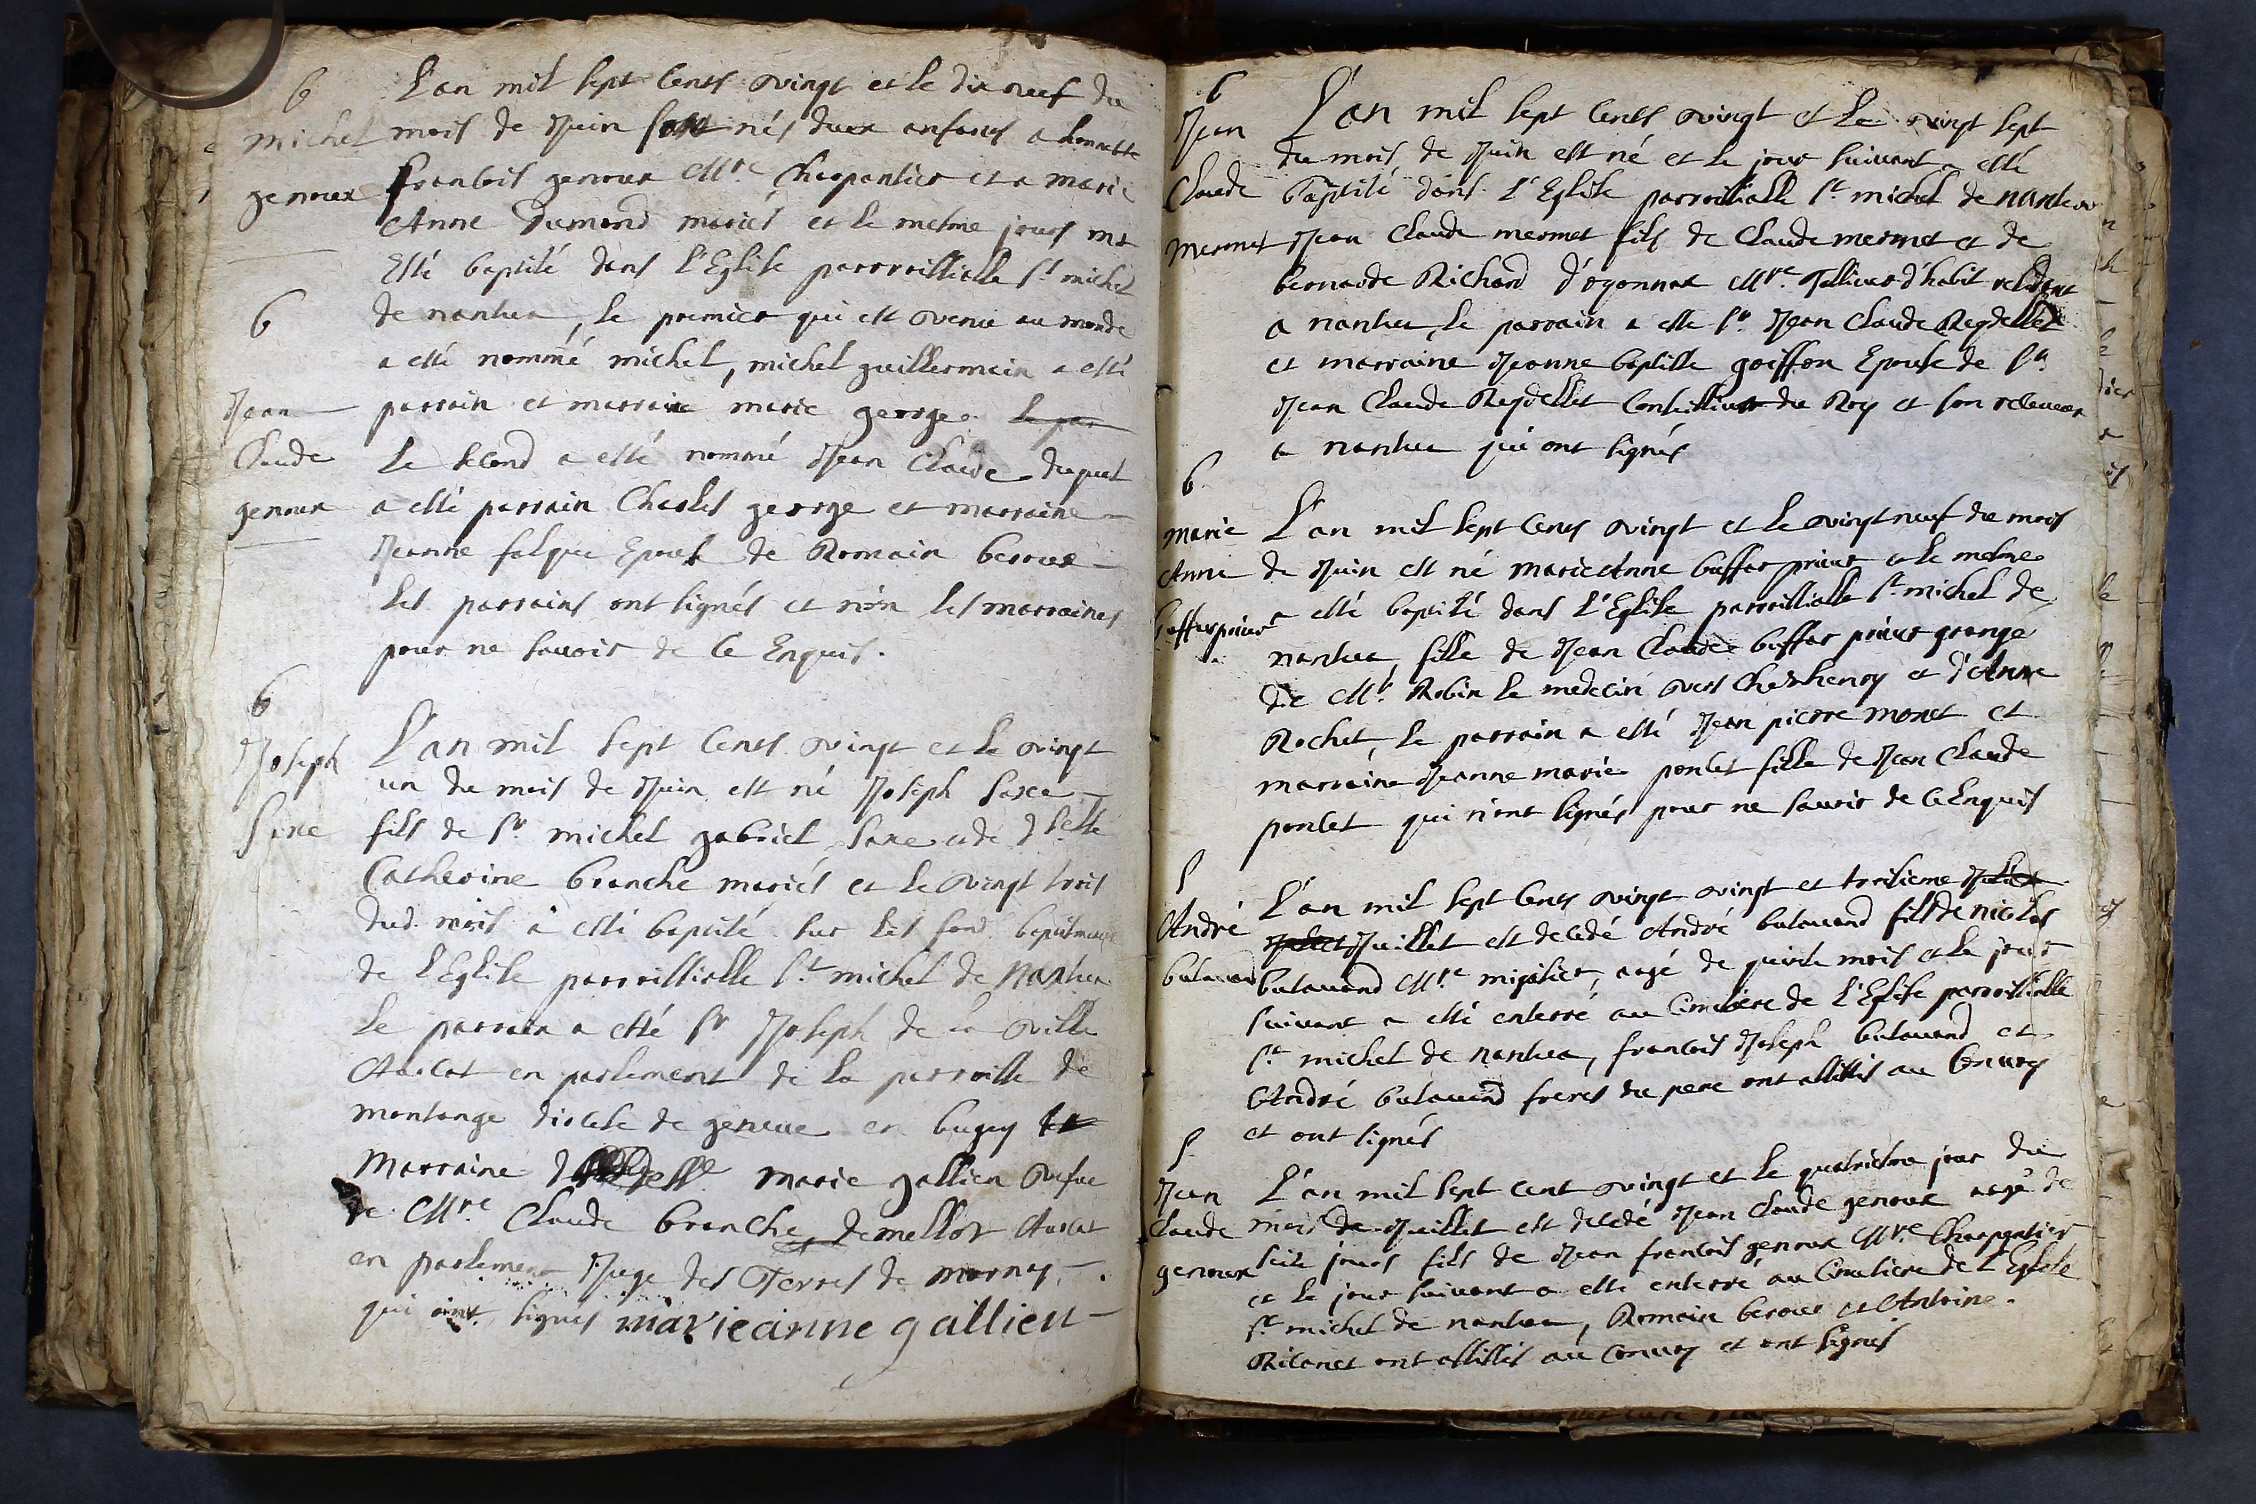 b
michel
genoux
L'an mil sept Cents vingt et le dix neuf du
mois de Juin sont nés deux enfans a honnette
francois genoux M.re Charpantier et a marie
Anne Dumond mariés et le mesme jours ont
Esté baptisé dans l'Eglise parroissialle S.t michel
de nantua, le premier qui est venu au monde
a esté nommé michel, michel guillermain a esté
parrain et marraine marie george
b
Jean
Claude
genoux
Le second a esté nommé Jean Claude duquel
a esté parrain Charles george et marraine
Jeanne falque Epouse de Romain beroux
Les parrains ont signés et non les marraines
pour ne sauoir de Ce Enquis.
b
Joseph
Saxe
L'an mil sept Cents vingt et le vingt
un du mois de Juin est né Joseph Saxe
fils de S.r michel gabriel Saxe et de D.elle
Catherine branche mariés et le vingt trois
dud. mois a esté baptisé sur les fond baptismaux
de l'Eglise parroissialle S.t michel de Nantua
Le parrain a esté S.r Joseph de la ville
Auocat en parlement de la parroisse de
montange diocese de geneue en bugey
Marraine marie gallien vefue
de M.re Claude branche demellon Auocat
en parlement Juge des Terres de mornay
qui ont signés marieanne gallien
b
Jean
Claude
mermet
L'an mil sept Cents vingt et Le vingt sept
du mois de Juin est né et le jour suivant a esté
baptisé dans l'Eglise parroissialle S.t michel de nantua
Jean Claude mermet fils de Claude mermet et de
bernarde Richard d'oyonnax M.re Tallieur d'habit residant
a nantua, le parrain a esté S.r Jean Claude Reydellet
et marraine Jeanne baptiste goiffon Epouse de S.r
Jean Claude Reydellet Conseillier du Roy et son receueur
a nantua qui ont signés
b
marie
Anne
buffar prieur
L'an mil sept Cents vingt et le vingt neuf du mois
de Juin est né marie Anne buffar prieur et le mesme
a esté baptisé dans l'Eglise parroissialle S.t michel de
nantua, fille de Jean Claude buffar prieur grange
de M.r Robin le medecin vers et d'Anne
Rochet, le parrain a esté Jean pierre monet et
marraine Jeanne marie poncet fille de Jean Claude
poncet qui n'ont signés pour ne sauoir de Ce Enquis
S
André
butauand
L'an mil sept Cents vingt vingt et troisieme
Juillet est decedé André butauand fils de nicolas
butauand M.re agé de quinse mois et le jour
suivant a esté enterré au Cimetiere de l'Eglise parroissialle
S.t michel de nantua, francois Joseph butauand et
André butauand freres du pere ont assistés au Convoy
et ont signés
S
Jean
Claude
genoux
L'an mil sept cent vingt et le quatriesme jour du
mois de Juillet est decedé Jean Claude genoux agé de
seise jours fils de Jean francois genoux M.re Charpantier
et le jour suivant a esté enterré au Cimetiere de l'Eglise
S.t michel de nantua, Romain beroux et Antoine
ont assistés au Convoy et ont signés